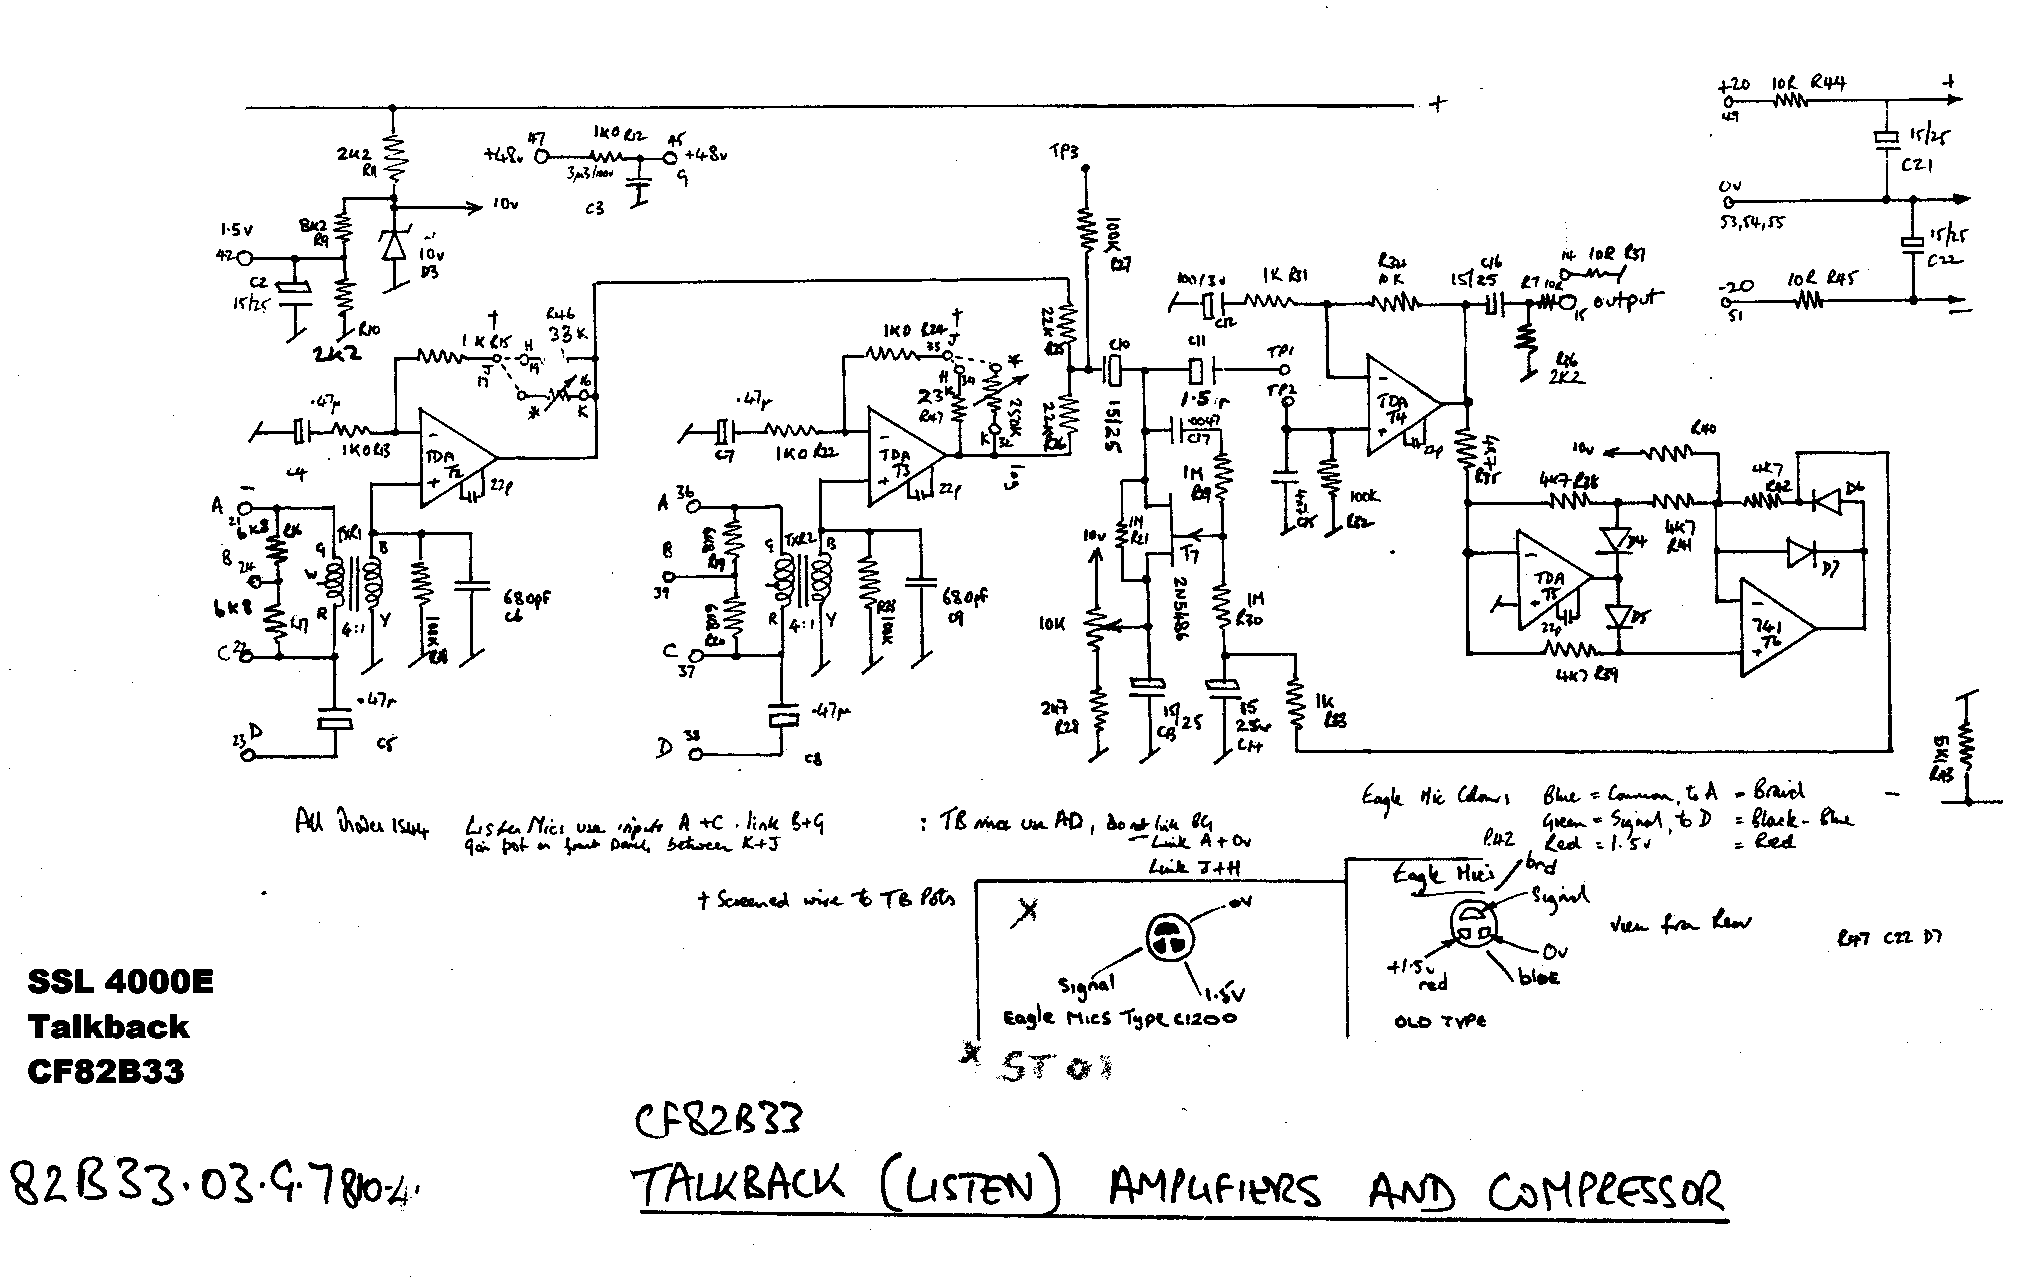 +
2K2
R11
47
+48v
1K0 R12
45
+48v
G
3µ3/100v
C3
10v
1.5v
42
8K2
R9
10v
D3
C2
15/25
R10
2K2
+20
49
10R R44
+
15/25
C21
0v
53,54,55
15/25
C22
-20
51
10R R45
—
TP3
100K
R27
1K R15
†
J
17
H
19
R46
33K
*
16
K
.47µ
C4
1K0 R13
-
TDA
T2
+
22p
A
21
6K8
B
24
6K8
R17
C
22
TXR1
G
W
R
B
Y
4:1
100K
680pf
C6
.47µ
C5
D
23
1K0 R24
†
J
35
H
34
33K
R47
*
250K
log
K
32
.47µ
C7
1K0 R22
-
TDA
T3
+
22p
A
36
6K8
R19
B
39
6K8
R20
C
37
TXR2
G
R
B
Y
4:1
100K
680pf
C9
.47µ
C8
D
38
22K
R25
22K
C10
15/25
C11
1.5µ
TP1
TP2
.0047
C17
1M
R29
1M
R21
T7
2N5486
1M
R30
10v
10K
2K7
R28
15/25
C13
15
25v
C14
1K
R33
100/3v
C12
1K R31
R34
10K
15/25
C16
R7
10R
14
10R R37
15
output
R36
2K2
-
TDA
T4
+
22p
C15
100K
R32
4K7
R35
10v
R40
4K7 R38
4K7
R41
4K7
R42
D6
D7
D4
D5
-
TDA
T5
+
22p
4K7 R39
-
741
T6
+
5K1
R43
—
All Diodes 1S44
Listen Mics use inputs A+C . link B+G
Gain pot on front panel between K+J
: TB mics use AD, Do not link BG
— Link A+0v
Link J+H
† Screened wire to TB Pots
Eagle Mic Colours Blue = Common, to A = Braid
Green = Signal, to D = Black - Blue
Red = 1.5v = Red
0v
signal
1.5V
Eagle Mics Type C1200
Eagle Mics
brd
signal
+1.5v
red
0v
blue
OLD TYPE
View from Rear
R47 C22 D7
* ST01
SSL 4000E
Talkback
CF82B33
CF82B33
82B33.03.G.7810.4.
TALKBACK (LISTEN) AMPLIFIERS AND COMPRESSOR